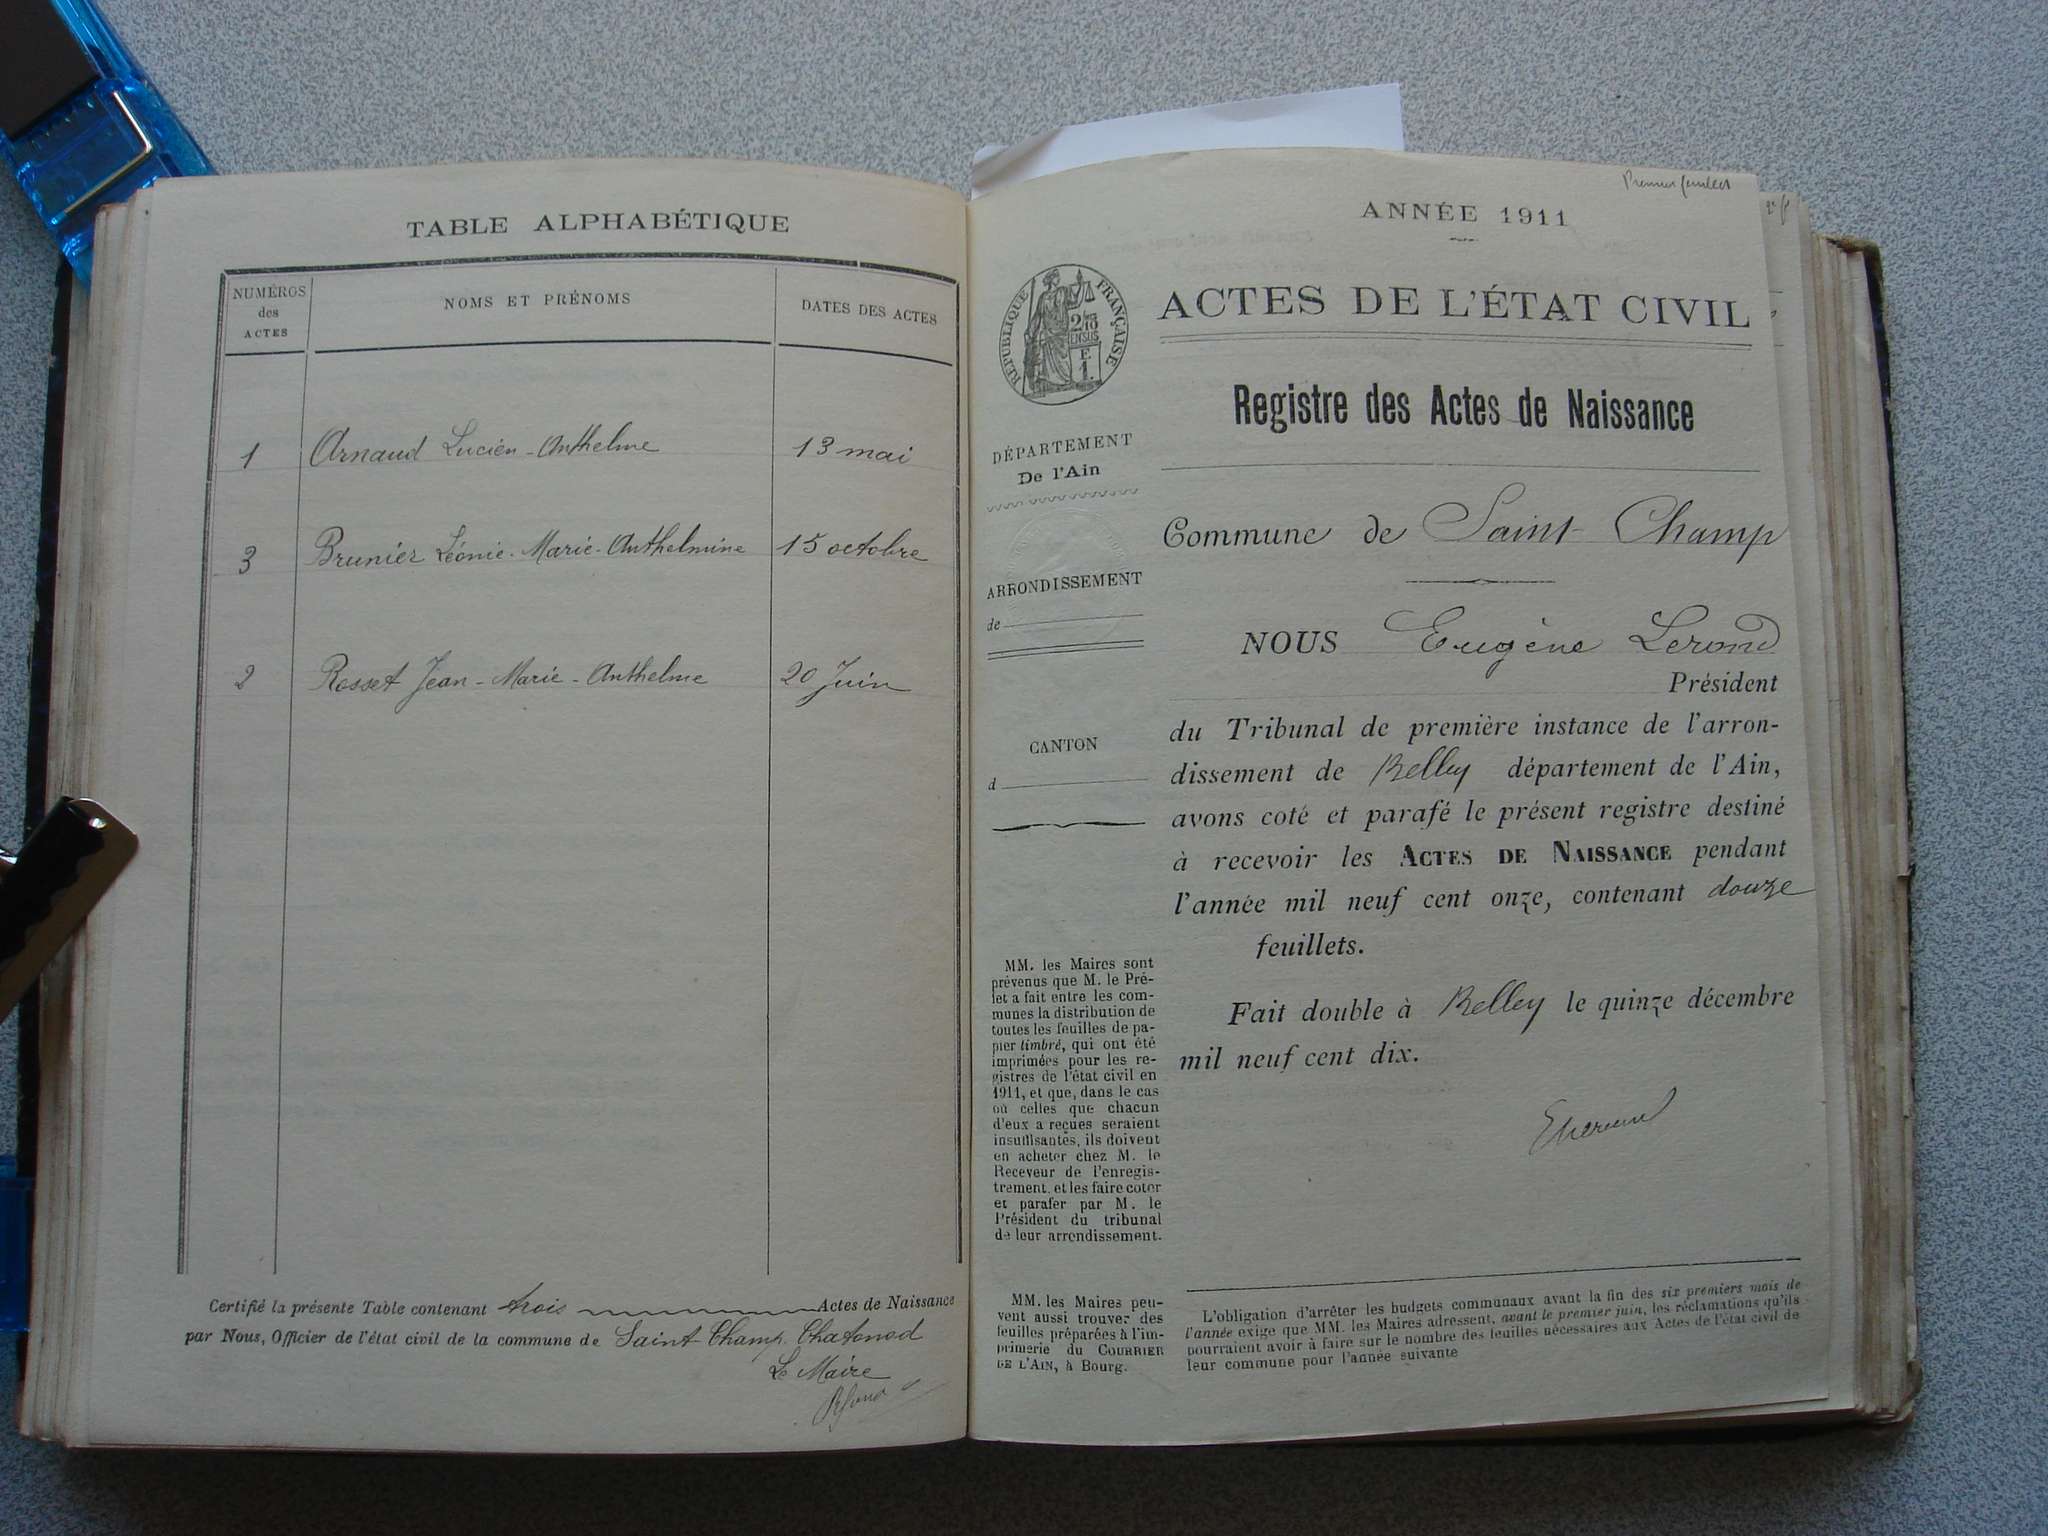 TABLE ALPHABÉTIQUE
NUMÉROS
des
ACTES
NOMS ET PRÉNOMS
DATES DES ACTES
1 Arnaud Lucien-Anthelme 13 mai
3 Brunier Léonie-Marie-Anthelmine 15 octobre
2 Rosset Jean-Marie-Anthelme 20 Juin
Certifié la présente Table contenant trois Actes de Naissance
par Nous, Officier de l'état civil de la commune de Saint Champ Chatonod
Le Maire
Premier feuillet
2e f
ANNÉE 1911
ACTES DE L'ÉTAT CIVIL
RÉPUBLIQUE FRANÇAISE
2/10
EN SUS
E
1.
Registre des Actes de Naissance
DÉPARTEMENT
De l'Ain
Commune de Saint-Champ
ARRONDISSEMENT
de
NOUS Eugène Lerond
Président
CANTON
d
du Tribunal de première instance de l'arron-
dissement de Belley département de l'Ain,
avons coté et parafé le présent registre destiné
à recevoir les ACTES DE NAISSANCE pendant
l'année mil neuf cent onze, contenant douze
feuillets.
Fait double à Belley le quinze décembre
mil neuf cent dix.
MM. les Maires sont
prévenus que M. le Pré-
fet a fait entre les com-
munes la distribution de
toutes les feuilles de pa-
pier timbré, qui ont été
imprimées pour les re-
gistres de l'état civil en
1911, et que, dans le cas
où celles que chacun
d'eux a reçues seraient
insuffisantes, ils doivent
en acheter chez M. le
Receveur de l'enregis-
trement, et les faire coter
et parafer par M. le
Président du tribunal
de leur arrondissement.
MM. les Maires peu-
vent aussi trouver des
feuilles préparées à l'im-
primerie du COURRIER
DE L'AIN, à Bourg.
L'obligation d'arrêter les budgets communaux avant la fin des six premiers mois de
l'année exige que MM. les Maires adressent, avant le premier juin, les réclamations qu'ils
pourraient avoir à faire sur le nombre des feuilles nécessaires aux Actes de l'état civil de
leur commune pour l'année suivante